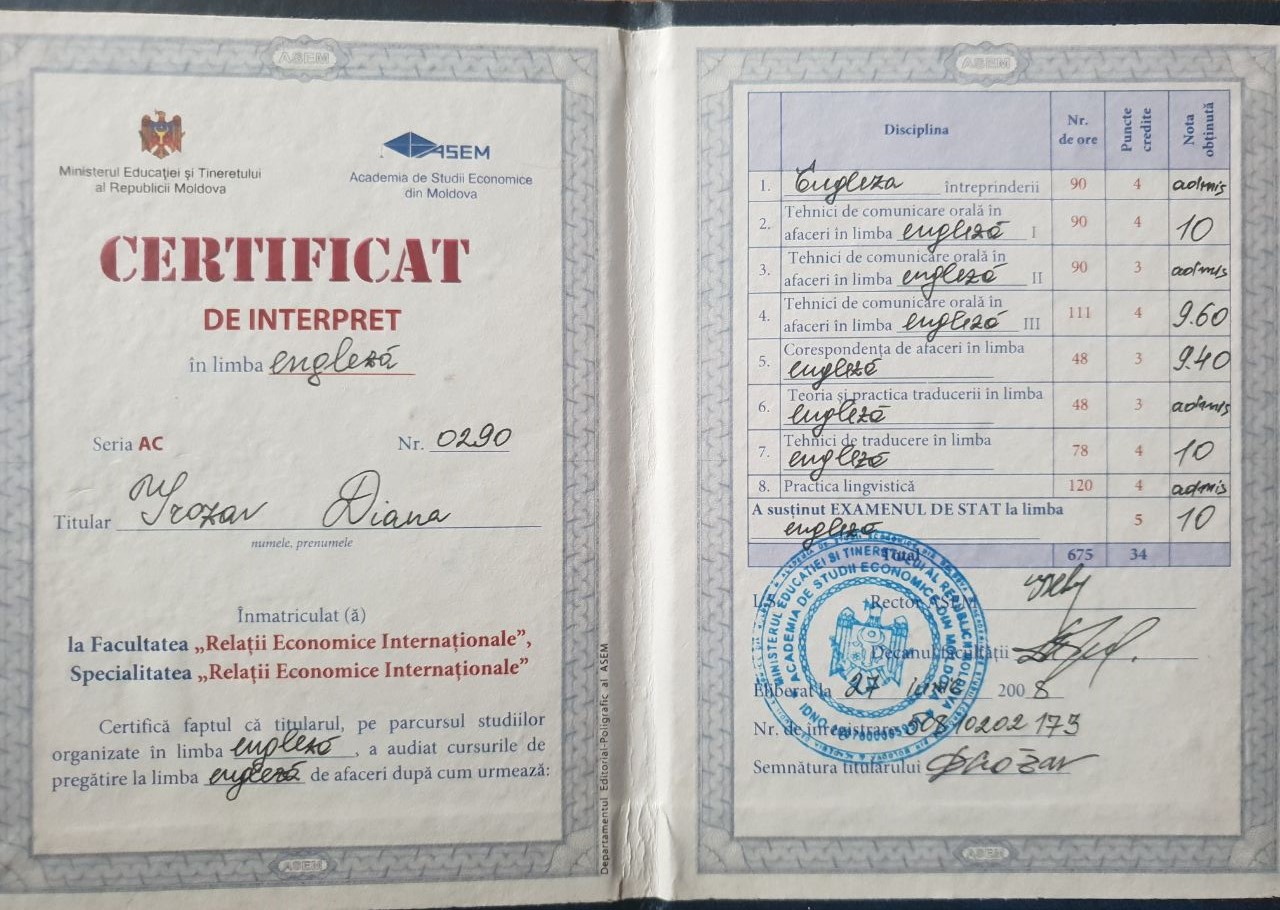 ASEM
Ministerul Educației și Tineretului
al Republicii Moldova
ASEM
Academia de Studii Economice
din Moldova
CERTIFICAT
DE INTERPRET
în limba engleză
Seria AC Nr. 0290
Titular Diana
numele, prenumele
Înmatriculat (ă)
la Facultatea „Relații Economice Internaționale”,
Specialitatea „Relații Economice Internaționale”
Certifică faptul că titularul, pe parcursul studiilor
organizate în limba engleză, a audiat cursurile de
pregătire la limba engleză de afaceri după cum urmează:
ASEM
Departamentul Editorial-Poligrafic al ASEM
ASEM
Disciplina Nr. de ore Puncte credite Nota obținută
1. Engleza întreprinderii 90 4 admis
2. Tehnici de comunicare orală în
afaceri în limba engleză I 90 4 10
3. Tehnici de comunicare orală în
afaceri în limba engleză II 90 3 admis
4. Tehnici de comunicare orală în
afaceri în limba engleză III 111 4 9.60
5. Corespondența de afaceri în limba
engleză 48 3 9.40
6. Teoria și practica traducerii în limba
engleză 48 3 admis
7. Tehnici de traducere în limba
engleză 78 4 10
8. Practica lingvistică 120 4 admis
A susținut EXAMENUL DE STAT la limba
engleză 5 10
Total 675 34
MINISTERUL EDUCAȚIEI ȘI TINERETULUI AL REPUBLICII MOLDOVA
ACADEMIA DE STUDII ECONOMICE DIN MOLDOVA
IDNO
Rector
Decanul facultății
Eliberat la 27 2008
Nr. de înregistrare 50810202173
Semnătura titularului
ASEM